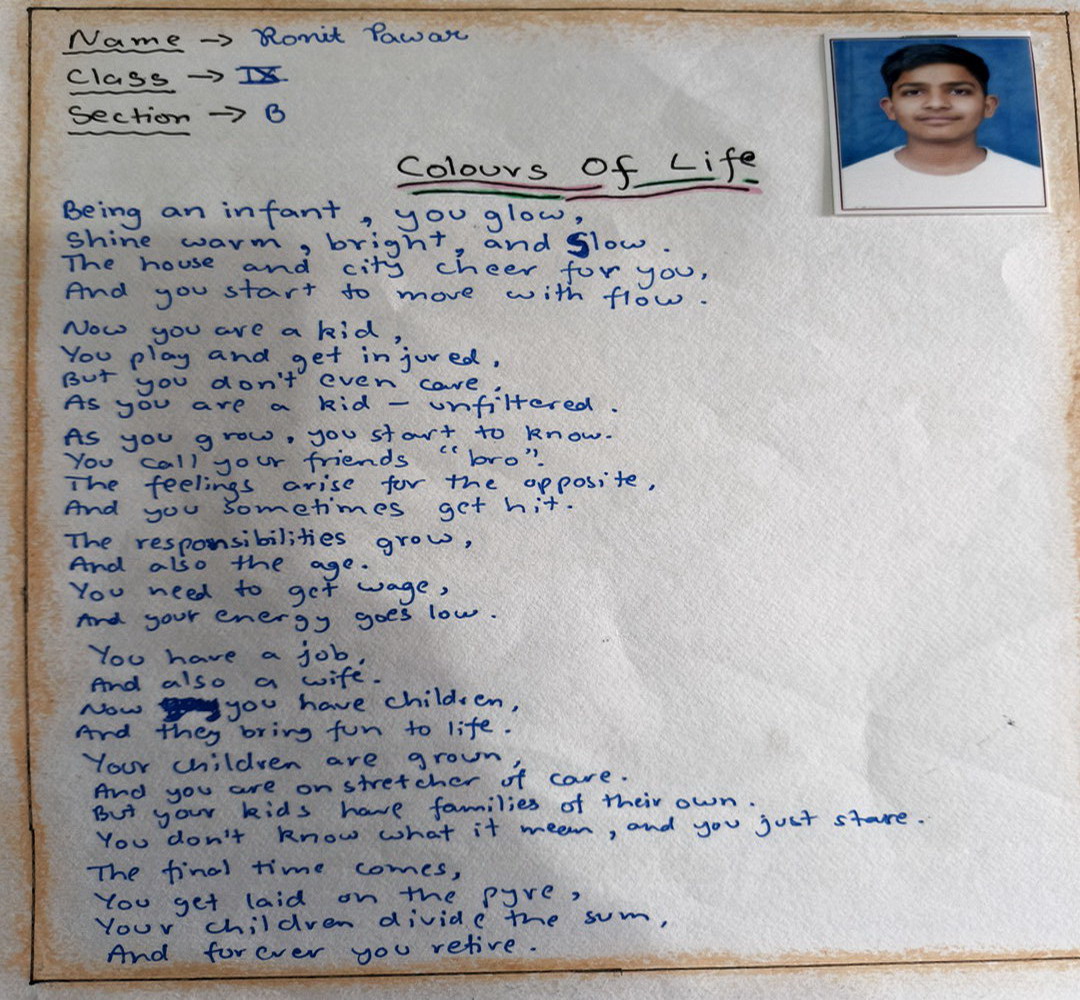 Name → Ronit Pawar
Class → IX
Section → B
Colours Of Life
Being an infant, you glow,
Shine warm, bright, and Slow.
The house and city cheer for you,
And you start to move with flow.
Now you are a kid,
You play and get injured,
But you don't even care,
As you are a kid - unfiltered.
As you grow, you start to know.
You call your friends "bro".
The feelings arise for the opposite,
And you sometimes get hit.
The responsibilities grow,
And also the age.
You need to get wage,
And your energy goes low.
You have a job,
And also a wife.
Now you have children,
And they bring fun to life.
Your children are grown,
And you are on stretcher of care.
But your kids have families of their own.
You don't know what it mean, and you just stare.
The final time comes,
You get laid on the pyre,
Your children divide the sum,
And forever you retire.